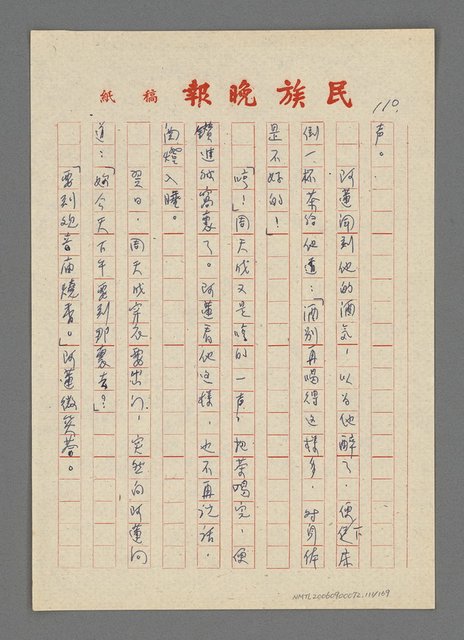 民族晚報 稿紙
110.
声。
阿蓮聞到他的酒気，以為他醉了，便下床
倒一杯茶給他道：「酒別再喝得這樣多，対身体
是不好的！」
「哼！」周天成又是哼的一声，把茶喝完，便
鑽進被窩裏了。阿蓮看他這樣，也不再说话，
関燈入睡。
翌日，周天成穿衣要出门，突然向阿蓮问
道：「妳今天下午要到那裏去？」
「要到观音庙燒香。」阿蓮微笑答。
NMTL20060900072.111/169